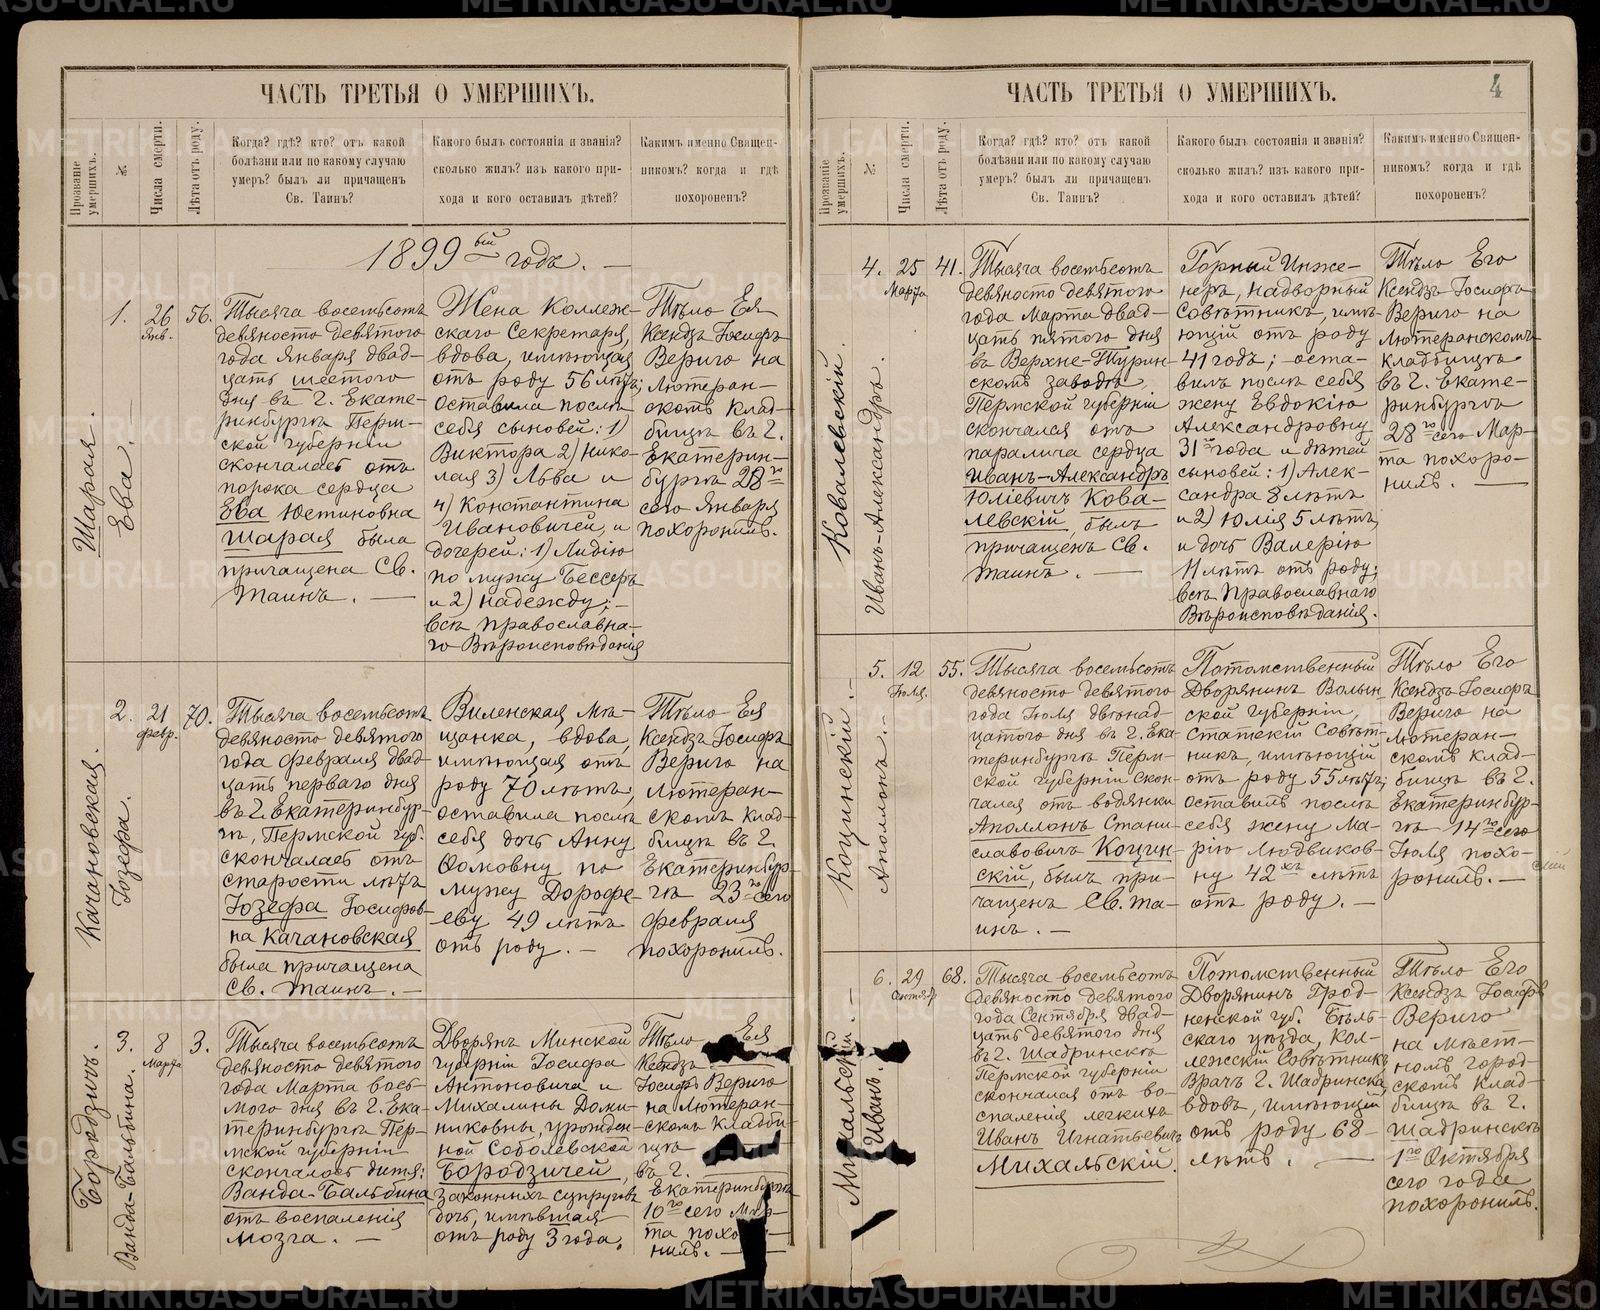 ЧАСТЬ ТРЕТЬЯ О УМЕРШИХЪ.
Прозваніе умершихъ.
№
Числа смерти.
Лѣта отъ роду.
Когда? гдѣ? кто? отъ какой
болѣзни или по какому случаю
умеръ? былъ ли причащенъ
Св. Таинъ?
Какого былъ состоянія и званія?
сколько жилъ? изъ какого при-
хода и кого оставилъ дѣтей?
Какимъ именно Священ-
никомъ? когда и гдѣ
похороненъ?
1899 ый годъ. —
Шарая.
Ева.
1.
26
Янв.
56.
Тысяча восемьсотъ
девяносто девятого
года Января двад-
цать шестого
дня въ г. Екате-
ринбургѣ Перм-
ской губерніи
скончалась отъ
порока сердца
Ева Юстиновна
Шарая была
причащена Св.
Таинъ. —
Жена Коллеж-
скаго Секретаря,
вдова, имѣющая
отъ роду 56 лѣтъ;
оставила послѣ
себя сыновей: 1)
Виктора 2) Нико-
лая 3) Льва и
4) Константина
Ивановичей, и
дочерей: 1) Лидію
по мужу Бессеръ
и 2) Надежду; —
всѣ Православна-
го Вѣроисповѣданія
Тѣло Ея
Ксендзъ Іосифъ
Вериго на
Лютеран-
скомъ клад-
бищѣ въ г.
Екатерин-
бургѣ 28 го
сего Января
похоронилъ.
Качановская.
Іозефа.
2.
21
Февр.
70.
Тысяча восемьсотъ
девяносто девятого
года Февраля двад-
цать перваго дня
въ г. Екатеринбур-
гѣ, Пермской губ.
скончалась отъ
старости лѣтъ
Іозефа Іосифов-
на Качановская
была причащена
Св. Таинъ. —
Виленская Мѣ-
щанка, вдова,
имѣющая отъ
роду 70 лѣтъ,
оставила послѣ
себя дочь Анну
Фомовну по
мужу Дорофе-
еву 49 лѣтъ
отъ роду. —
Тѣло Ея
Ксендзъ Іосифъ
Вериго на
Лютеран-
скомъ клад-
бищѣ въ г.
Екатеринбур-
гѣ 23 го сего
Февраля
похоронилъ.
Бородзичъ.
Ванда-Бальбина.
3.
8
Марта
3.
Тысяча восемьсотъ
девяносто девятого
года Марта вось-
мого дня въ г. Ека-
теринбургѣ Пер-
мской губерніи
скончалась дитя:
Ванда-Бальбина
отъ воспаленія
мозга. —
Дворянъ Минской
губерніи Іосифа
Антоновича и
Михалины Доми-
никовны, урожден-
ной Соболевской
Бородзичей,
законныхъ супруговъ
дочь, имѣвшая
отъ роду 3 года.
Тѣло Ея
Ксендзъ
Іосифъ Вериго
на Лютеран-
скомъ кладби-
щѣ
въ г.
Екатеринбургѣ
10 го сего Мар-
та похо-
нилъ. —
ЧАСТЬ ТРЕТЬЯ О УМЕРШИХЪ.
4
Прозваніе умершихъ.
№
Числа смерти.
Лѣта отъ роду.
Когда? гдѣ? кто? отъ какой
болѣзни или по какому случаю
умеръ? былъ ли причащенъ
Св. Таинъ?
Какого былъ состоянія и званія?
сколько жилъ? изъ какого при-
хода и кого оставилъ дѣтей?
Какимъ именно Священ-
никомъ? когда и гдѣ
похороненъ?
Ковалевскій.
Иванъ-Александръ.
4.
25
Марта
41.
Тысяча восемьсотъ
девяносто девятого
года Марта двад-
цать пятого дня
въ Верхне-Турин-
скомъ заводѣ,
Пермской губерніи
скончался отъ
паралича сердца
Иванъ-Александръ
Юліевичъ Кова-
левскій, былъ
причащенъ Св.
Таинъ. —
Горный Инже-
неръ, Надворный
Совѣтникъ, имѣ-
ющій отъ роду
41 годъ; оста-
вилъ послѣ себя
жену Евдокію
Александровну
31 года и дѣтей
сыновей: 1) Алек-
сандра 8 лѣтъ
и 2) Юлія 5 лѣтъ,
и дочь Валерію
11 лѣтъ отъ роду;
всѣ Православнаго
Вѣроисповѣданія.
Тѣло Его
Ксендзъ Іосифъ
Вериго на
Лютеранскомъ
кладбищѣ
въ г. Екате-
ринбургѣ
28 го сего Мар-
та похоро-
нилъ. —
Коцинскій. —
Аполлонъ. —
5.
12
Іюля.
55.
Тысяча восемьсотъ
девяносто девятого
года Іюля двѣнад-
цатого дня въ г. Ека-
теринбургѣ Перм-
ской губерніи скон-
чался отъ водянки
Аполлонъ Стани-
славовичъ Коцин-
скій, былъ при-
чащенъ Св. Та-
инъ. —
Потомственный
Дворянинъ Волын-
ской губерніи,
Статскій Совѣт-
никъ, имѣющій
отъ роду 55 лѣтъ,
оставилъ послѣ
себя жену Ма-
рію Людвиков-
ну 42 хъ лѣтъ
отъ роду. —
Тѣло Его
Ксендзъ Іосифъ
Вериго на
Лютеран-
скомъ клад-
бищѣ въ г.
Екатеринбур-
гѣ 14 го сего
Іюля похо-
ронилъ. —
Михальскій. —
Иванъ.
6.
29
Сентяб.
68.
Тысяча восемьсотъ
девяносто девятого
года Сентября двад-
цать девятого дня
въ г. Шадринскѣ
Пермской губерніи
скончался отъ во-
спаленія легкихъ
Иванъ Игнатьевичъ
Михальскій.
Потомственный
Дворянинъ Грод-
ненской губ. Бѣль-
скаго уѣзда, Кол-
лежскій Совѣтникъ
Врачъ г. Шадринска,
вдовъ, имѣющій
отъ роду 68-
лѣтъ. —
Тѣло Его
Ксендзъ Іосифъ
Вериго
на мѣст-
номъ город-
скомъ клад-
бищѣ въ г.
Шадринскѣ
1 го Октября
сего года
похоронилъ.
METRIKI.GASO-URAL.RU